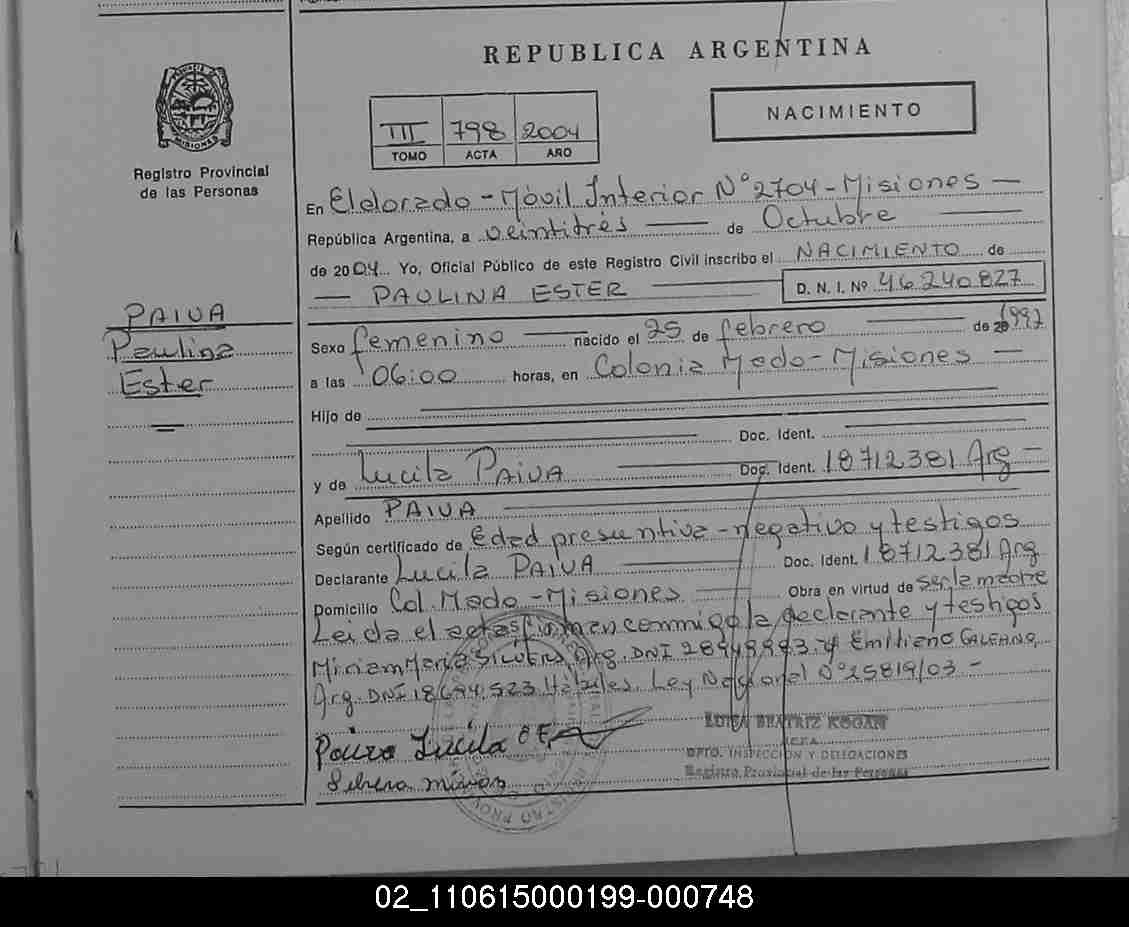 REPUBLICA ARGENTINA
PROVINCIA DE
MISIONES
Registro Provincial
de las Personas
III 798 2004
TOMO ACTA AÑO
NACIMIENTO
En Eldorado - Móvil Interior N° 2704 - Misiones -
República Argentina, a veintitrés de Octubre
de 2004 Yo, Oficial Público de este Registro Civil inscribo el NACIMIENTO de
PAULINA ESTER D. N. I. Nº 46240827
PAIVA
Paulina
Ester
Sexo femenino nacido el 25 de febrero de 20 1997
a las 06:00 horas, en Colonia Mado - Misiones -
Hijo de
Doc. Ident.
y de Lucila PAIVA Doc. Ident. 18712381 Arg -
Apellido PAIVA
Según certificado de Edad presuntiva - negativo y testigos
Declarante Lucila PAIVA Doc. Ident. 18712381 Arg
Domicilio Col. Mado - Misiones Obra en virtud de ser la madre
Leida el acta firman conmigo la declarante y testigos
Miriam Maria SILVERA, Arg. DNI y Emiliano GALEANO,
Arg. DNI 18694523 Hábiles. Ley Nacional N° 25819/03 -
Paiva Lucila
LUISA BEATRIZ KOGAN
DPTO. INSPECCION Y DELEGACIONES
Registro Provincial de las Personas
02_110615000199-000748